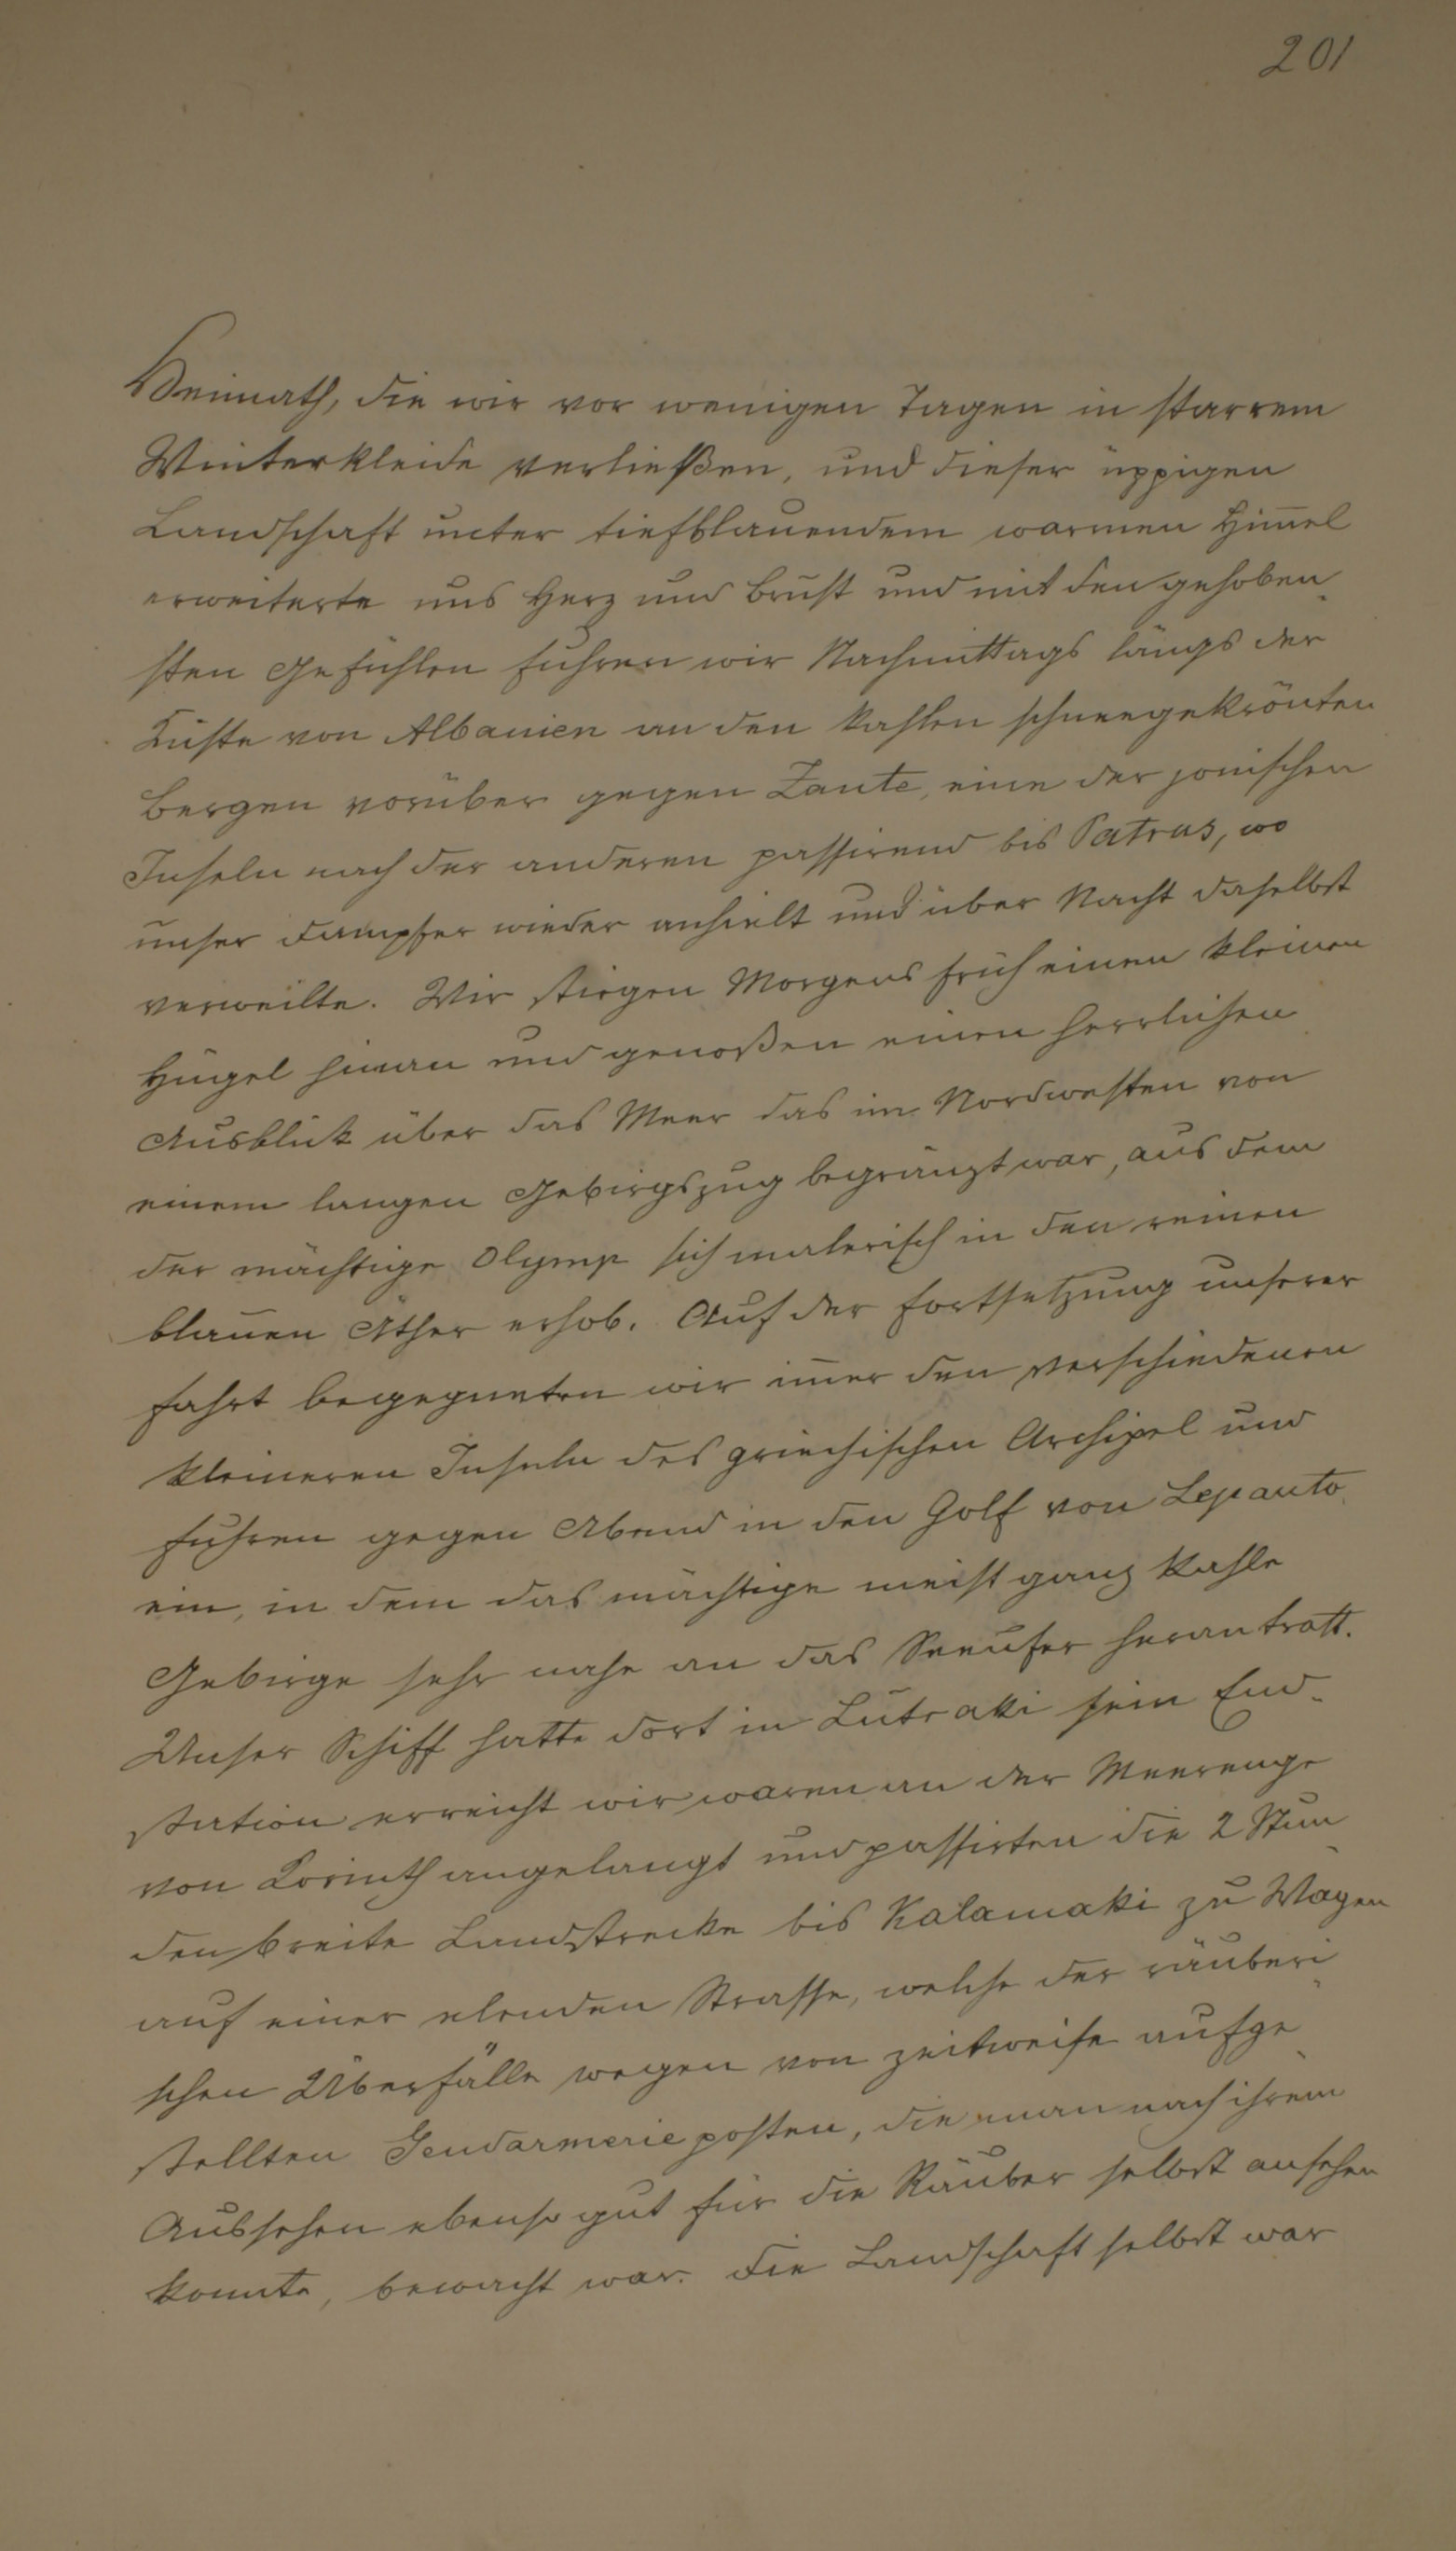 201
Heimath, die wir vor wenigen Tagen in starrem
Winterkleide verließen, und dieser üppigen
Landschaft unter tiefblauendem warmen Him̅el
erweiterte uns Herz und Brust und mit den gehoben-
sten Gefühlen fuhren wir Nachmittags längs der
Küste von Albanien an den kahlen schneegekrönten
Bergen vorüber gegen Zante, eine der jonischen
Inseln nach der anderen passirend bis Patras, wo
unser Dampfer wieder anhielt und über Nacht daselbst
verweilte. Wir stiegen Morgens früh einen kleinen
Hügel hinan und genoßen einen herrlichen
Ausblick über das Meer das im Nordwesten von
einem langen Gebirgszug begränzt war, aus dem
der mächtige Olymp sich malerisch in den reinen
blauen Äther erhob. Auf der Fortsetzung unserer
Fahrt begegneten wir im̅er den verschiedenen
kleineren Inseln des griechischen Archipel und
fuhren gegen Abend in den Golf von Lepanto
ein, in dem das mächtige meist ganz kahle
Gebirge sehr nahe an das Seeufer herantratt.
Unser Schiff hatte dort in Lutraki sein End-
station erreicht wir waren an der Meerenge
von Korinth angelangt und passirten die 2 Stun-
den breite Landstrecke bis Kalamaki zu Wagen
auf einer elenden Strasse, welche der räuberi-
schen Überfälle wegen von zeitweise aufge-
stellten Gendarmerieposten, die man nach ihrem
Aussehen ebenso gut für die Räuber selbst ansehen
konnte, bewacht war. Die Landschaft selbst war